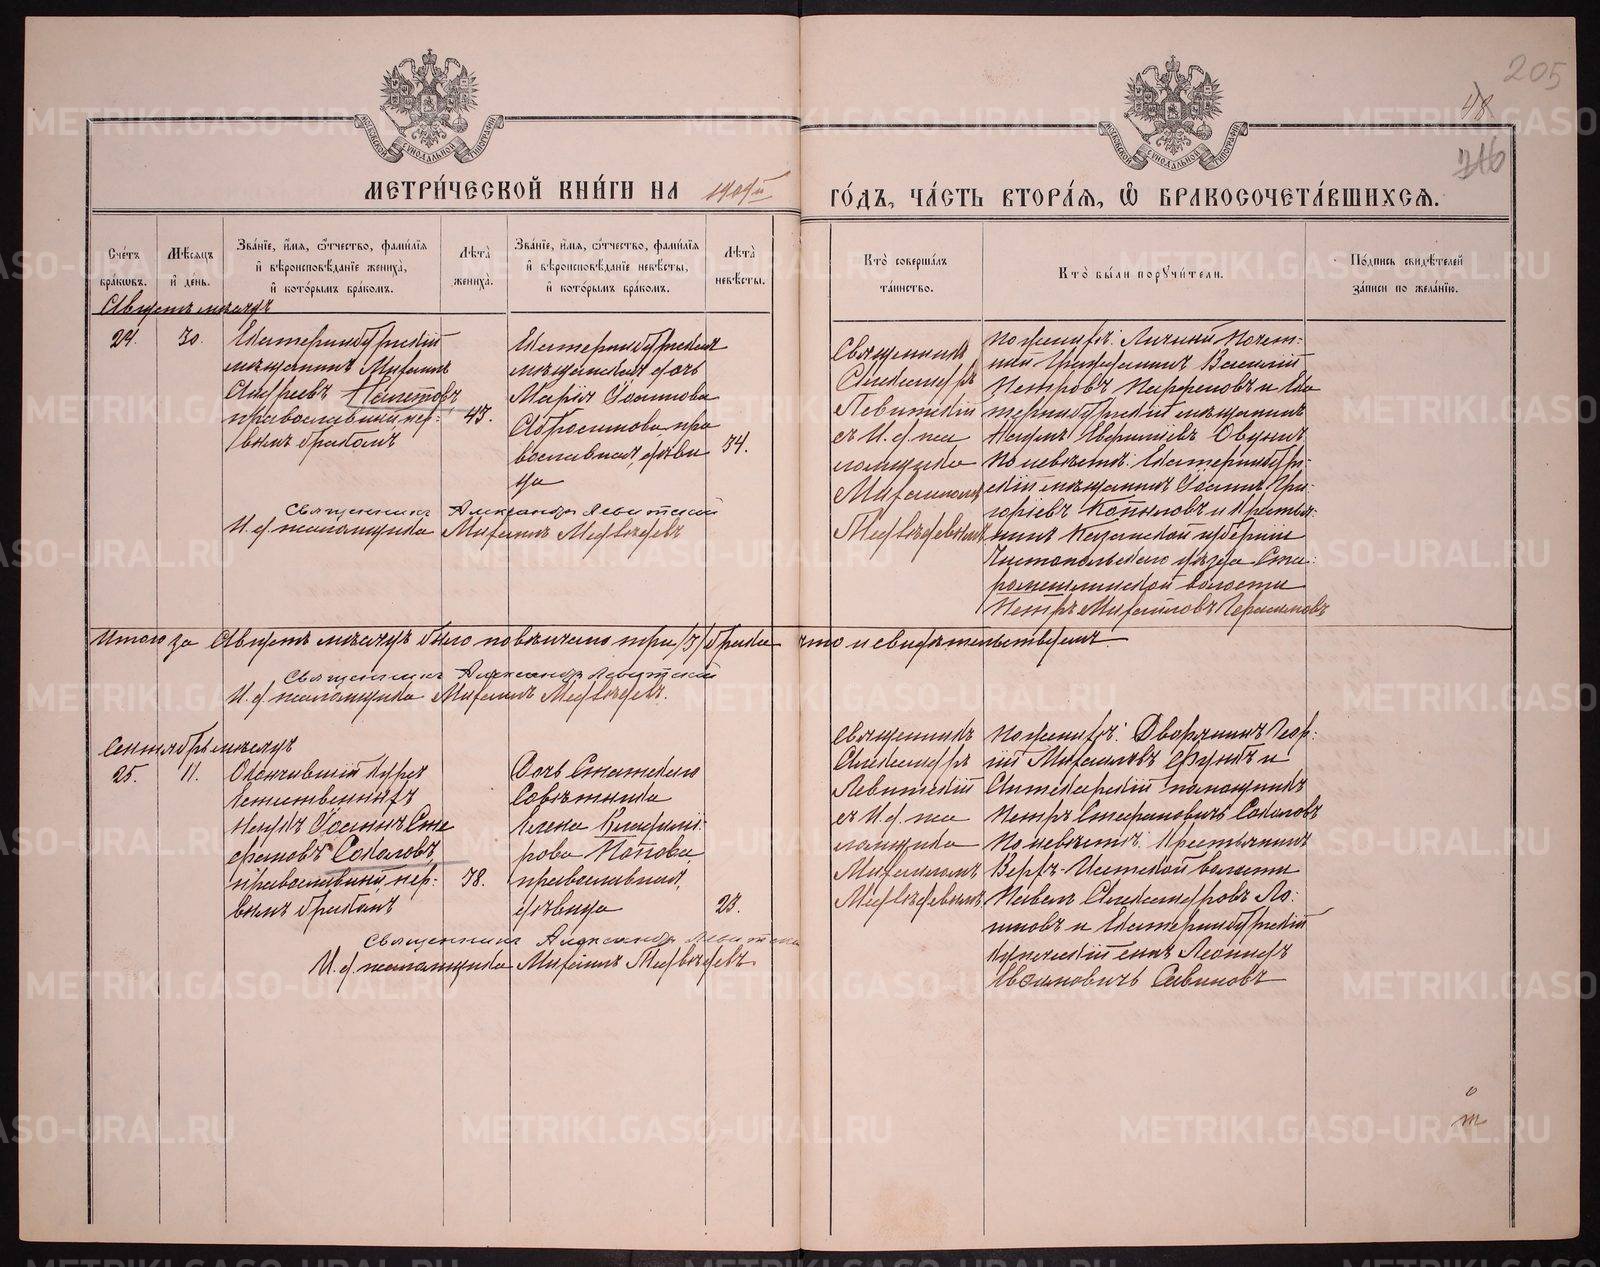 205
48
316
МЕТРИ́ЧЕСКОЙ КНИ́ГИ НА 1909й ГО́ДЪ, ЧА́СТЬ ВТОРА́Я, Ѽ БРАКОСОЧЕТА́ВШИХСЯ.
Сче́тъ бра́ковъ.
Мѣ́сяцъ и҆ де́нь.
Зва́нїе, и҆́мя, ѻ҆́тчество, фами́лїя
и҆ вѣроисповѣ́данїе жениха̀,
и҆ кото́рымъ бра́комъ.
Лѣта̀ жениха̀.
Зва́нїе, и҆́мя, ѻ҆́тчество, фами́лїя
и҆ вѣроисповѣ́данїе невѣ́сты,
и҆ кото́рымъ бра́комъ.
Лѣта̀ невѣ́сты.
Кто̀ соверша́лъ та́инство.
Кто̀ бы́ли порꙋчи́тели.
По́дпись свидѣ́телей за́писи по жела́нїю.
Августъ мѣсяцъ
24.
30.
Екатеринбургскій
мѣщанинъ Михаилъ
Андреевъ
православный, пер-
вымъ бракомъ
43.
Екатеринбургская
мѣщанская дочь
Марія Іоаннова
Абросимова, пра
вославная, дѣви
ца
34.
Священникъ
Александръ
Левитскій
съ И. д. пса
ломщика
Михаиломъ
Медвѣдевымъ
По женихѣ: Личный Почет-
ный Гражданинъ Василій
Петровъ Парфеновъ и Ека
теринбургскій мѣщанинъ
По невѣстѣ: Екатеринбург-
скій мѣщанинъ Іоаннъ Гри-
горіевъ Копыловъ и крестья-
нинъ Казанской губерніи
Чистопольскаго уѣзда Ста-
волости
Петръ Михайловъ Герасимовъ
Священникъ Александръ Левитскій
И. д. псаломщика Михаилъ Медвѣдевъ
Итого за Августъ мѣсяцъ было повѣнчано три /3/ брака что и свидѣтельствуемъ.
Священникъ Александръ Левитскій
И. д. псаломщика Михаилъ Медвѣдевъ.
Сентябрь мѣсяцъ
25.
11.
Окончившій курсъ
Естественныхъ
наукъ Іоаннъ Сте
фановъ Соколовъ,
православный, пер-
вымъ бракомъ
38.
Дочь Статскаго
Совѣтника
Елена Владимі-
рова Попова,
православная,
дѣвица
23.
Священникъ
Александръ
Левитскій
съ И. д. пса
ломщика
Михаиломъ
Медвѣдевымъ
По женихѣ: Дворянинъ Геор-
гій Михаиловъ и
Аптекарскій помощникъ
Петръ Стефановичъ Соколовъ
По невѣстѣ: Крестьянинъ
Верхъ-Исетской волости
Павелъ Александровъ Ло-
и Екатеринбургскій
купеческій сынъ Леонидъ
Ивановичъ Савиновъ
Священникъ Александръ Левитскій
И. д. псаломщика Михаилъ Медвѣдевъ
METRIKI.GASO-URAL.RU